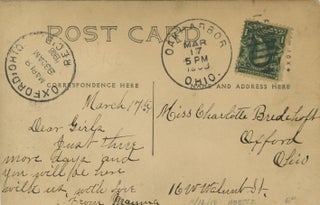 POST CARD
OAK HARBOR
MAR
17
5 PM
OHIO.
OXFORD, OHIO
MAR
REC'D
CORRESPONDENCE HERE
AND ADDRESS HERE
March 17th
Dear Girls
Just three
more days and
you will be here
with us, with love
from Mamma
Miss Charlotte Bredehoft
Oxford
Ohio
16 W Walnut St.